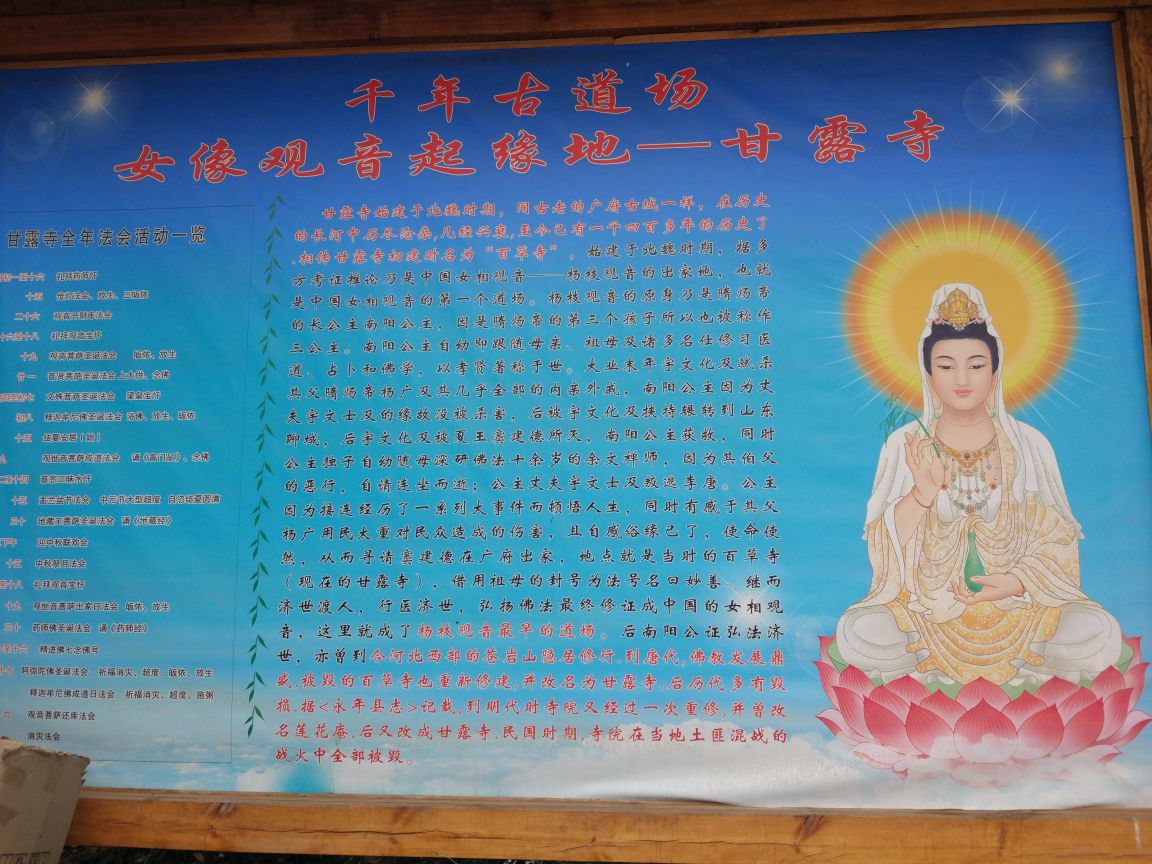 千年古道场
女像观音起缘地——甘露寺
甘露寺全年法会活动一览
初一至十六 礼拜药师忏
十五 传灯法会、放生、三皈依
二十六 观音开财库法会
十六至十八 礼拜观音宝忏
十九 观音菩萨圣诞法会 皈依、放生
廿一 普贤菩萨圣诞法会 上大供、念佛
至初七 文殊菩萨圣诞法会 梁皇宝忏
初八 释迦牟尼佛圣诞法会 浴佛、放生、皈依
十五 结夏安居(始)
九 观世音菩萨成道法会 诵《普门品》、念佛
至十四 慈悲三昧水忏
十五 盂兰盆节法会 中元节大型超度 自恣结夏圆满
三十 地藏王菩萨圣诞法会 诵《地藏经》
下午 迎中秋联欢会
十五 中秋祭月法会
至十八 礼拜观音宝忏
十九 观世音菩萨出家日法会 皈依、放生
三十 药师佛圣诞法会 诵《药师经》
至十六 精进佛七念佛号
十七 阿弥陀佛圣诞法会 祈福消灾、超度、皈依、放生
释迦牟尼佛成道日法会 祈福消灾、超度、施粥
九 观音菩萨还库法会
消灾法会
甘露寺始建于北魏时期，同古老的广府古城一样，在历史
的长河中历尽沧桑,几经兴衰,至今已有一千四百多年的历史了
.相传甘露寺初建时名为“百草寺”，始建于北魏时期，据多
方考证推论乃是中国女相观音——杨枝观音的出家地，也就
是中国女相观音的第一个道场。杨枝观音的原身乃是隋炀帝
的长公主南阳公主，因是隋炀帝的第三个孩子所以也被称作
三公主。南阳公主自幼即跟随母亲、祖母及诸多名仕修习医
道、占卜和佛学，以孝贤著称于世。大业末年宇文化及弑杀
其父隋炀帝杨广及其几乎全部的内亲外戚，南阳公主因为丈
夫宇文士及的缘故没被杀害，后被宇文化及挟持辗转到山东
聊城，后宇文化及被夏王窦建德所灭，南阳公主获救，同时
公主独子自幼随母深研佛法十余岁的余文禅师，因为其伯父
的恶行，自请连坐而逝；公主丈夫宇文士及叛逃李唐。公主
因为接连经历了一系列大事件而顿悟人生，同时有感于其父
杨广用民太重对民众造成的伤害，且自感俗缘已了，使命使
然，从而寻请窦建德在广府出家，地点就是当时的百草寺
（现在的甘露寺），借用祖母的封号为法号名曰妙善。继而
济世渡人，行医济世，弘扬佛法最终修证成中国的女相观
音，这里就成了杨枝观音最早的道场。后南阳公证弘法济
世，亦曾到今河北西部的苍岩山隐居修行,到唐代,佛教发展鼎
盛,被毁的百草寺也重新修建,并改名为甘露寺.后历代多有毁
损.据<永年县志>记载,到明代时寺院又经过一次重修,并曾改
名莲花庵,后又改成甘露寺.民国时期,寺院在当地土匪混战的
战火中全部被毁。